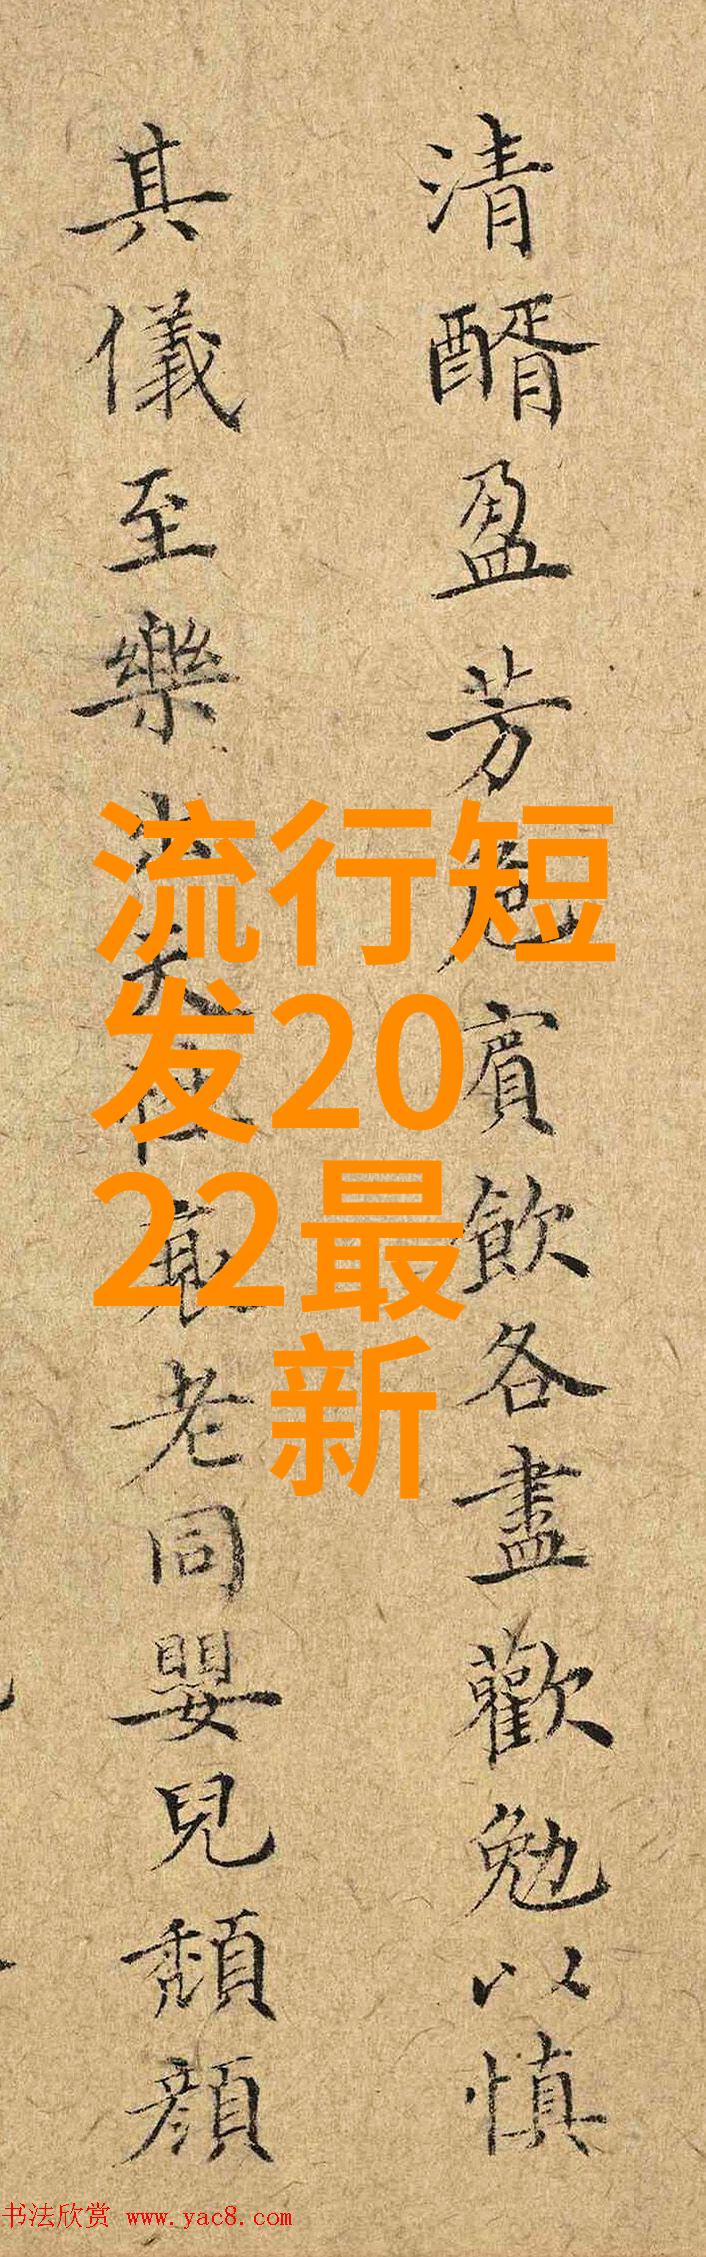 清醑盈芳賓飲各盡歡勉以慎
其儀至樂衰老同嬰兒頹顏
流行短
发20
22最
新
书法欣赏 www.yac8.com